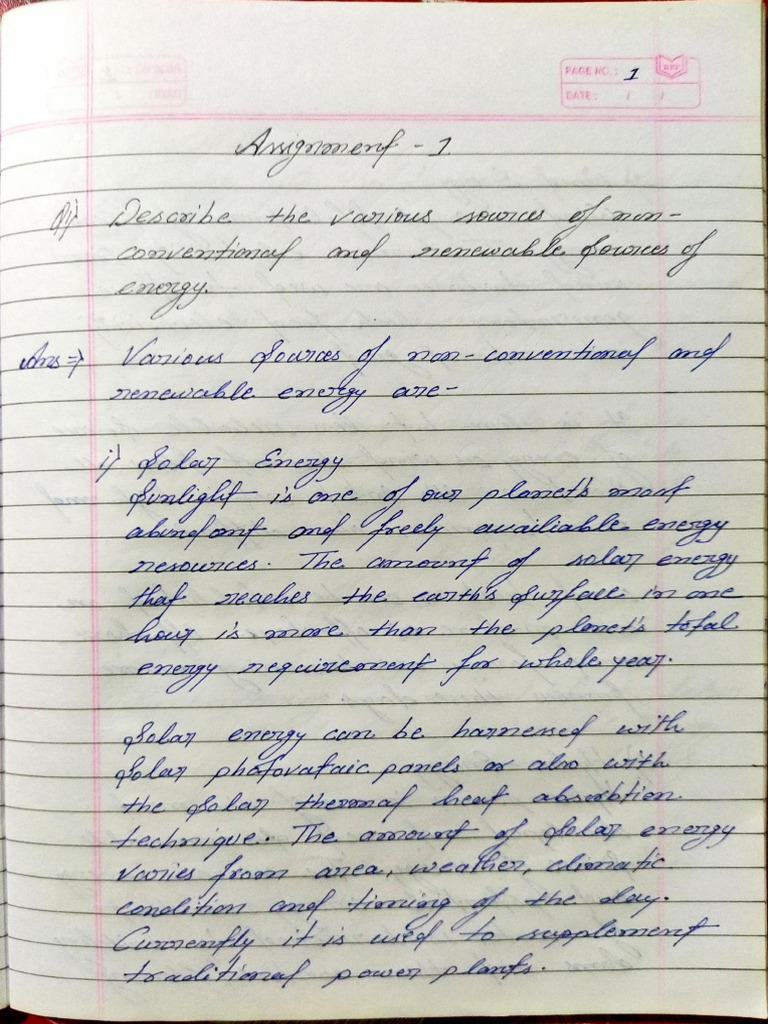 PAGE NO.: 1
DATE: / /
Assignment - 1
Q1) Describe the various sources of non-
conventional and renewable sources of
energy.
Ans => Various sources of non-conventional and
renewable energy are-
i) Solar Energy
Sunlight is one of our planet's most
abundant and freely availiable energy
resources. The amount of solar energy
that reaches the earth's surface in one
hour is more than the planet's total
energy requirement for whole year.
Solar energy can be harnessed with
solar photovataic panels or also with
the solar thermal heat absorbtion
technique. The amount of solar energy
varies from area, weather, climatic
condition and timing of the day.
Currently it is used to supplement
traditional power plants.